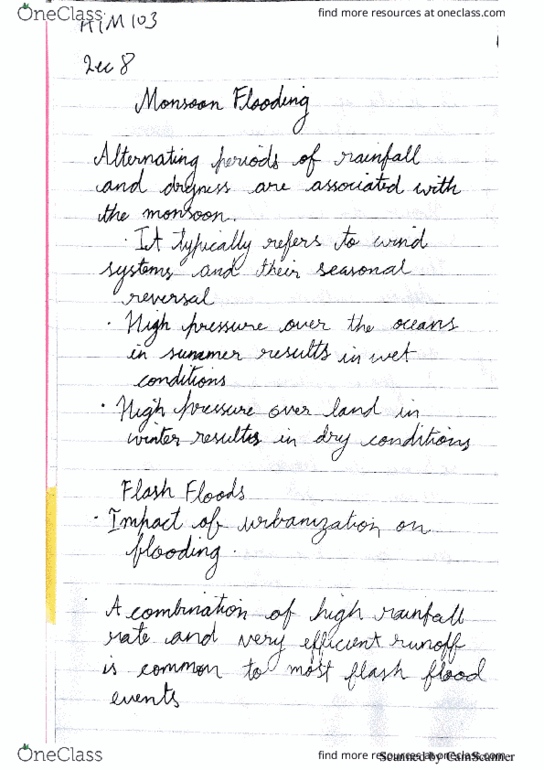 OneClass
find more resources at oneclass.com
ATM 103
Lec 8
Monsoon Flooding
Alternating periods of rainfall
and dryness are associated with
the monsoon.
· It typically refers to wind
systems and their seasonal
reversal
· High pressure over the oceans
in summer results in wet
conditions
· High pressure over land in
winter results in dry conditions
Flash Floods
· Impact of urbanization on
flooding.
· A combination of high rainfall
rate and very efficient runoff
is common to most flash flood
events
OneClass
find more resources at oneclass.com
Scanned by CamScanner